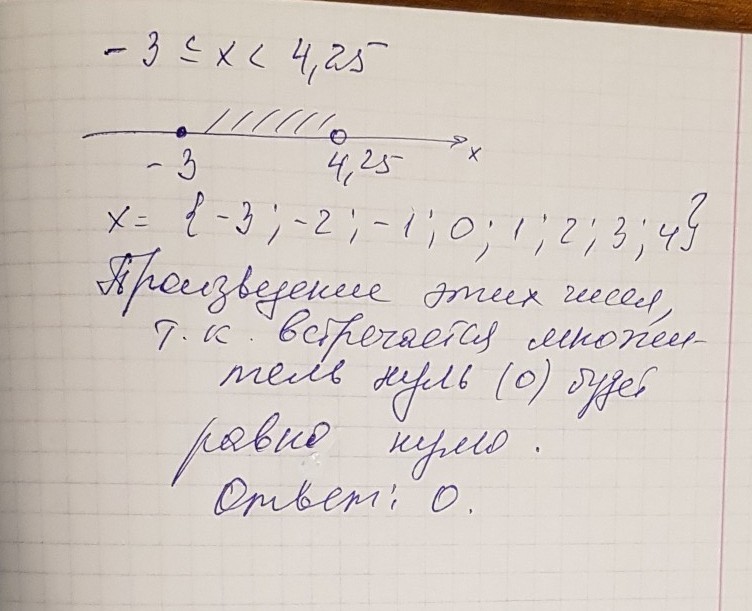 -3 ≤ x < 4,25
-3 4,25 x
x = {-3; -2; -1; 0; 1; 2; 3; 4}
Произведение этих чисел,
т.к. встречается множи-
тель нуль (0) будет
равно нулю.
Ответ: 0.